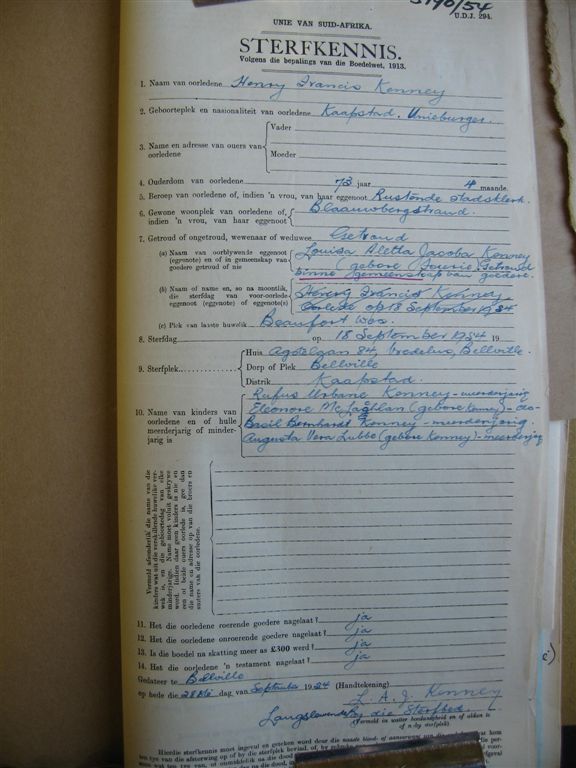 5190/54
U.D.J. 294.
UNIE VAN SUID-AFRIKA.
STERFKENNIS.
Volgens die bepalings van die Boedelwet, 1913.
1. Naam van oorledene Henry Francis Kenney
2. Geboorteplek en nasionaliteit van oorledene Kaapstad. Unieburger.
3. Name en adresse van ouers van oorledene
Vader
Moeder
4. Ouderdom van oorledene 73 jaar 4 maande.
5. Beroep van oorledene of, indien 'n vrou, van haar eggenoot Rustende Stadsklerk.
6. Gewone woonplek van oorledene of, indien 'n vrou, van haar eggenoot Blaauwbergstrand.
7. Getroud of ongetroud, wewenaar of weduwee Getroud
(a) Naam van oorblywende eggenoot (eggenote) en of in gemeenskap van goedere getroud of nie
Louisa Aletta Jacoba Kenney
(gebore Fourie) Getroud
binne gemeenskap van goedere.
(b) Naam of name en, so na moontlik, die sterfdag van voor-oorlede eggenoot (eggenote) of eggenote(s)
Henry Francis Kenney
Oorlede op 18 September 1954
(c) Plek van laaste huwelik Beaufort Wes.
8. Sterfdag op 18 September 1954 19
9. Sterfplek
Huis 84, Vredelus, Bellville.
Dorp of Plek Bellville
Distrik Kaapstad.
10. Name van kinders van oorledene en of hulle meerderjarig of minderjarig is
Rufus Urbane Kenney - meerderjarig
Eleonore McLaghlan (gebore Kenney) - do
Basil Bernhardt Kenney - meerderjarig.
Augusta Vera Lubbe (gebore Kenney) - meerderjarig
Vermeld afsonderlik die name van die kinders wat uit die verskillende huwelike verwek is, en die geboortedag van elke minderjarige. Name moet voluit geskrywe word. Indien daar geen kinders is nie en een of beide ouers oorlede is, gee dan die name en adresse op van die broers en susters van die oorledene.
11. Het die oorledene roerende goedere nagelaat? ja
12. Het die oorledene onroerende goedere nagelaat? ja
13. Is die boedel na skatting meer as £300 werd? ja
14. Het die oorledene 'n testament nagelaat? ja
Gedateer te Bellville
op hede die 28ste dag van September 1954 (Handtekening)
L. A. J. Kenney
Langslewende By die Sterfbed.
(Vermeld in watter hoedanigheid en of al dan